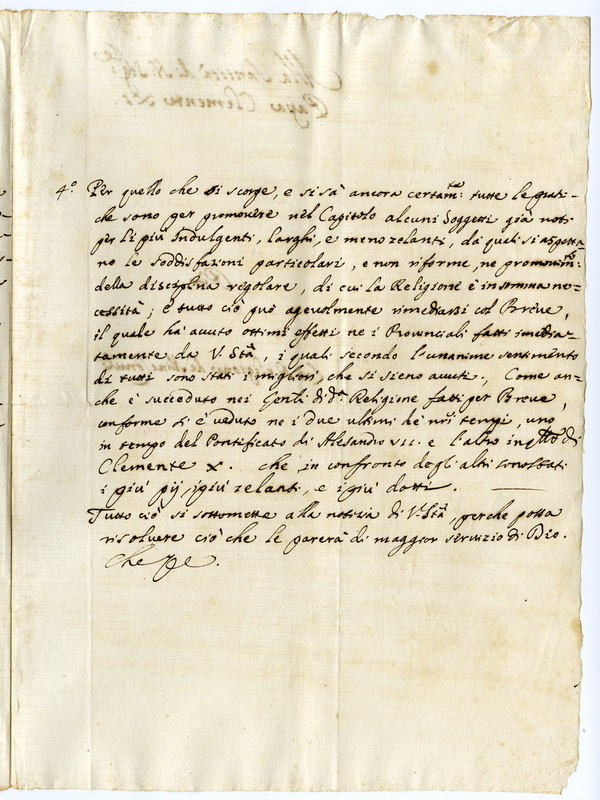 4.º Per quello che si scorge, e si sà ancora certam.te tutte le prati-
che sono per promovere nel Capitolo alcuni Soggetti già noti
per li più Indulgenti, larghi, e meno zelanti, da quali si aspetta-
no le soddisfazioni particolari, e non riforme, ne promovim.to
della disciplina regolare, di cui la Religione è in somma ne-
cessità; è tutto ciò può agevolmente rimediarsi col Breve,
il quale hà avuto ottimi effetti ne i Provinciali fatti imedia-
tamente da V. Stà, i quali secondo l'unanime sentimento
di tutti sono stati i migliori, che si sieno avuti., Come an-
che è succeduto nei Gen.li di d.a Religione fatti per Breve,
conforme si è veduto ne i due ultimi de nri tempi, uno
in tempo del Pontificato di Alesandro VII. e l'altro in q.llo di
Clemente X. che in confronto degli altri sono stati
i più pij, i più zelanti, e i più dotti.
Tutto ciò si sottomette alla notizia di V. Stà, perche possa
risolvere ciò che le parerà di maggior servizio di Dio.
Che
Alla Santità di N. Sig.re
Papa Clemente XI.